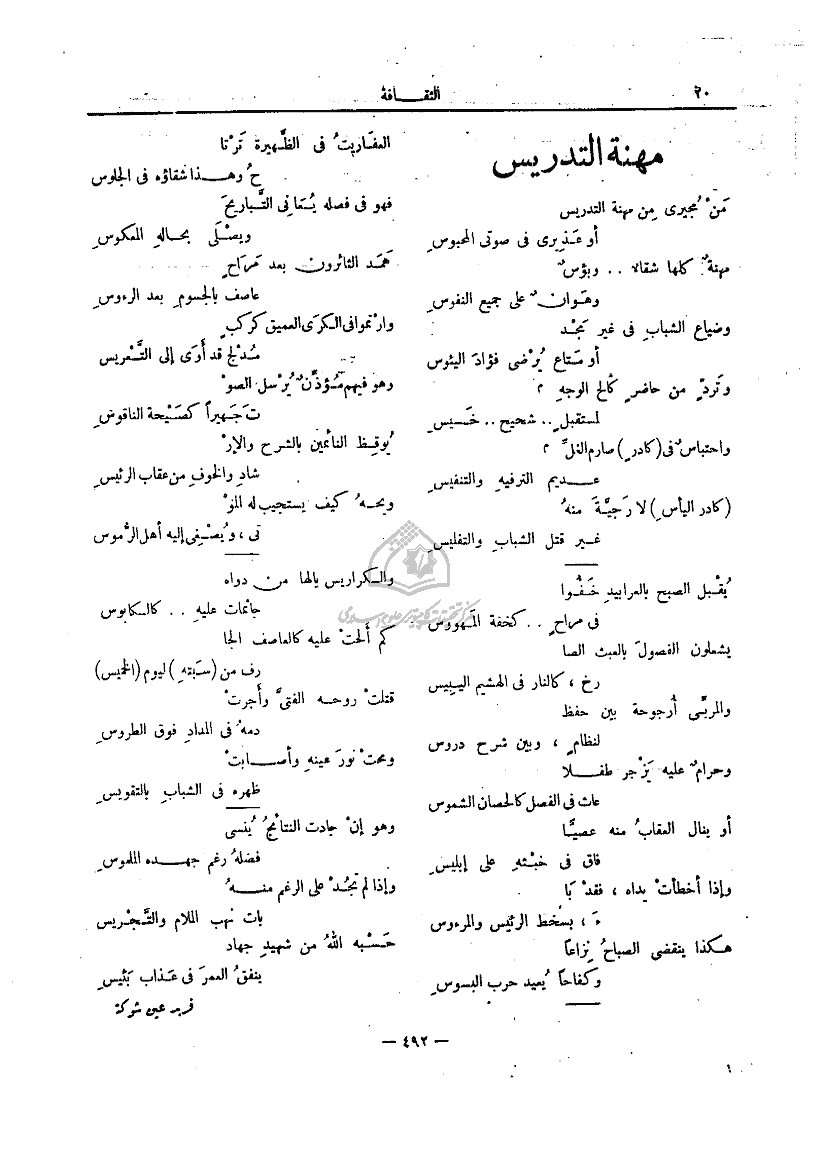 ٢٠
الثقـــافة
مهنة التدريس
مَنْ مُجيرى مِن مهنة التدريس
أو عَـذيرى فى صوتى المحبوس
مهنةٌ كلها شقاء .. وبؤسٌ
وهَـوانٌ على جميع النفوس
وضياع الشباب فى غير مَجْـد
أو متاع يُرْضى فؤادَ اليئوس
وتَردٍّ من حاضرٍ كالح الوجهِ م
لمستقبلٍ .. شحيح .. خَسيس
واحتباسٌ فى (كادر) صارم الغلِّ م
عـديم الترفيهِ والتنفيسِ
(كادر اليأس) لا رَجيَّـةَ منهُ
غـير قتل الشباب والتفليسِ
يُقْـبل الصبح بالعرابيد خَـفُّـوا
فى مراحٍ .. كخفة المَـهْووسِ
يشعلون الفصولَ بالعبث الصا
رخ ، كالنار فى الهشيم اليَبيس
والمربِّى أرجوحة بين حفظ
لنظامٍ ، وبين شرح دروس
وحرامٌ عليه يَزْجر طفـلا
عاث فى الفصل كالحصان الشموس
أو ينال العقابُ منه عصيًّـا
فاق فى خبْـثهِ على إبليسِ
وإذا أخطأتْ يداه ، فقدْ بَا
ءَ ، بسخط الرئيس والمرءوس
هـكذا ينقضى الصباحُ نِزاعاً
وكفاحاً يُعيد حرب البسوسِ
العفـاريتُ فى الظَّهيرة تَرْتا
حُ وهــذا شقاؤه فى الجلوس
فهو فى فصله يُـعانى التَّـباريحَ
ويصْـلَى بحـالهِ المعكوسِ
هَمَـد الثائرون بعد مَراحٍ
عاصف بالجسومِ بعد الرءوسِ
وارتموا فى الـكرى العميق كركبٍ
مُدْلجٍ قد أَرَى إلى التَّـعريس
وهو فيهم مُـؤذِّنٌ يُرْسل الصوْ
تَ جَـهيراً كصَـيْحة الناقوسِ
يُوقِـظ النائمين بالشرح والإرْ
شادِ والخوفِ من عقاب الرئيسِ
ويحـهُ كيف يستجيب له الموْ
تى ، ويُصْـغى إليه أهل الرُّموس
والـكراريس يالها من دواه
جاثمات عليه .. كالـكابوس
كم ألحتْ عليه كالعاصف الجا
رف من (سَبتهِ) ليوم (الخميس)
قتلتْ روحـه الفتىَّ وأجرتْ
دمهُ فى المدادِ فوق الطروسِ
ومحتْ نورَ عينهِ وأصــابتْ
ظهره فى الشبابِ بالتقويسِ
وهو إنْ جادت النتائجُ يُنسى
فضلهُ رغم جهــده الملموسِ
وإذا لم تَجُـدْ على الرغم منــهُ
بات نهب الملام والتَّـجْريس
حَسْـبه اللهُ من شهيدِ جهاد
ينفقُ العمرَ فى عـذاب بَئيسِ
فريد عين شوكة
— ٤٩٢ —